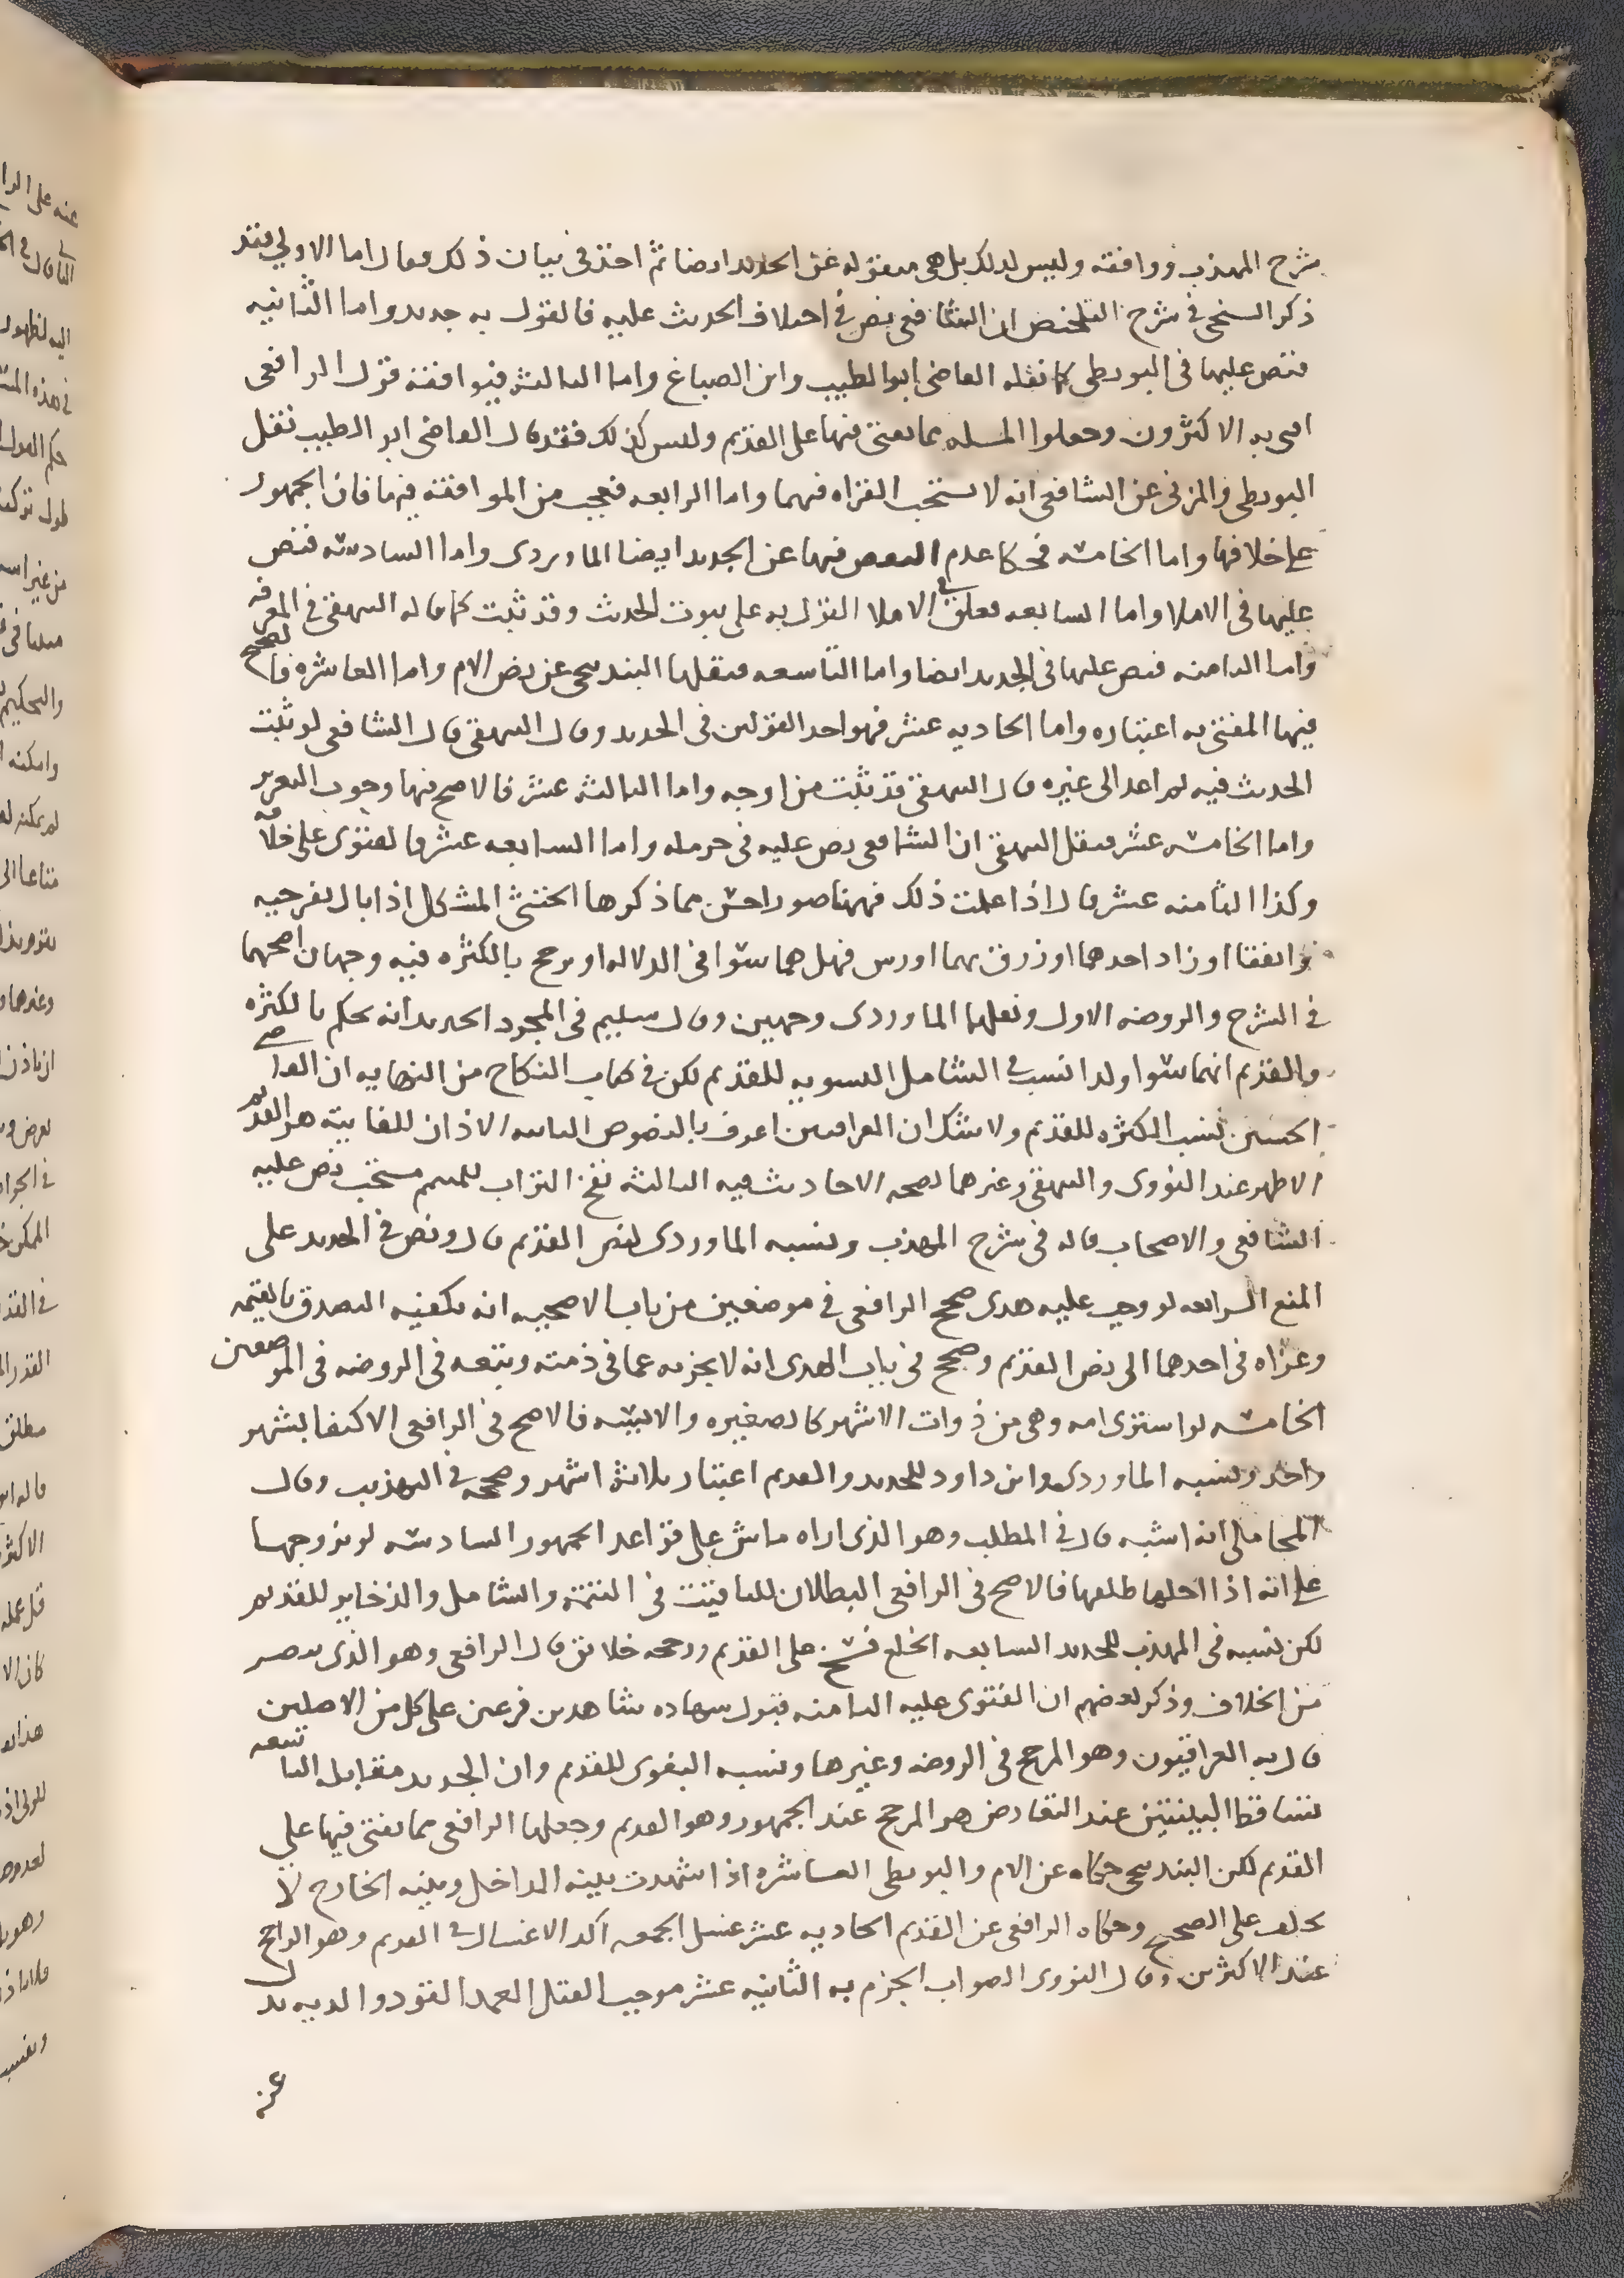 شرح المهذب ووافقه وليس كذلك بل هي منقوله عن الجديد ايضا ثم اخذ في بيان ذلك فقال اما الاولي فقد
ذكر السنجي في شرح التلخيص ان الشافعي نص في اختلاف الحديث عليه فالقول به جديد واما الثانيه
فنص عليها في البويطي كما نقله القاضي ابو الطيب وابن الصباغ واما الثالثه فيوافقه قول الرافعي
افتي به الاكثرون وجعلوا المسله مما يفتي فيها على القديم وليس كذلك فقد قال القاضي ابو الطيب نقل
البويطي والمزني عن الشافعي انه لا يستحب القراه فيهما واما الرابعه فعجب من الموافقه فيها فان الجمهور
على خلافها واما الخامسه فحكا عدم النقض فيها عن الجديد ايضا الماوردي واما السادسه فنص
عليها في الاملا واما السابعه فعلق في الاملا القول به على ثبوت الحديث وقد ثبت كما قاله البيهقي في المعرفه
واما الثامنه فنص عليها في الجديد ايضا واما التاسعه فنقلها البندنيجي عن نص الام واما العاشره فالصحيح
فيها المفتي به اعتباره واما الحاديه عشر فهو احد القولين في الجديد وقال البيهقي قال الشافعي لو ثبت
الحديث فيه لم اعد الى غيره قال البيهقي قد ثبت من اوجه واما الثالثه عشر فالاصح فيها وجوب التعزير
واما الخامسه عشر فنقل البيهقي ان الشافعي نص عليه في حرمله واما السابعه عشر فالفتوى على خلافه
وكذا الثامنه عشر قال اذا علمت ذلك فههنا صور احسن مما ذكرها الخنثى المشكل اذا بال بفرجيه
توافقا او زاد احدهما او زرق بهما اورس فهل هما سوا في الدلاله او يرجح بالكثره فيه وجهان اصحهما
في الشرح والروضه الاول ونقلهما الماوردي وجهين وقال سليم في المجرد الجديد انه يحكم بالكثره
والقديم انهما سوا ولذا نسب في الشامل التسويه للقديم لكن في كتاب النكاح من النهايه ان القاضي
الحسين نسب الكثره للقديم ولا شك ان العراقيين اعرف بالنصوص الثانيه الاذان للفايته هو القديم
الاظهر عند النووي والبيهقي وغيرهما لصحه الاحاديث فيه الثالثه نفخ التراب للتيمم مستحب نص عليه
الشافعي والاصحاب قاله في شرح المهذب ونسبه الماوردي لنص القديم قال ونص في الجديد على
المنع الرابعه لو وجب عليه هدي صحح الرافعي في موضعين من باب الاضحيه انه يكفيه التصدق بالقيمه
وعزاه في احدهما الى نص القديم وصحح في باب الهدي انه لا يجزيه عما في ذمته وتبعه في الروضه في الموضعين
الخامسه لو استرى امه وهي من ذوات الاشهر كالصغيره والايسه فالاصح في الرافعي الاكتفا بشهر
واحد ونسبه الماوردي وابن داود للجديد والقديم اعتبار ثلاثه اشهر وصححه في التهذيب وقال
المحاملي انه اشبه قال في المطلب وهو الذي اراه ماش على قواعد الجمهور السادسه لو تزوجها
على انه اذا احلها طلقها فالاصح في الرافعي البطلان للتاقيت في التتمه والشامل والذخاير للقديم
لكن نسبه في المهذب للجديد السابعه الخلع فسخ على القديم ورجحه خلايق قال الرافعي وهو الذي ينصر
من الخلاف وذكر بعضهم ان الفتوى عليه الثامنه قبول شهاده شاهدين فرعين على كل من الاصلين
قال به العراقيون وهو المرجح في الروضه وغيرها ونسبه البغوي للقديم وان الجديد مقابله التاسعه
تساقط البينتين عند التعارض هو المرجح عند الجمهور وهو القديم وجعلها الرافعي مما يفتي فيها علي
القديم لكن البندنيجي حكاه عن الام والبويطي العاشره اذا شهدت بينه الداخل وبينه الخارج لا
يحلف على الصحيح وحكاه الرافعي عن القديم الحاديه عشر غسل الجمعه اكد الاغسال في القديم وهو الراجح
عند الاكثرين وقال النووي الصواب الجزم به الثانيه عشر موجب القتل العمد القود والديه بدل
عن